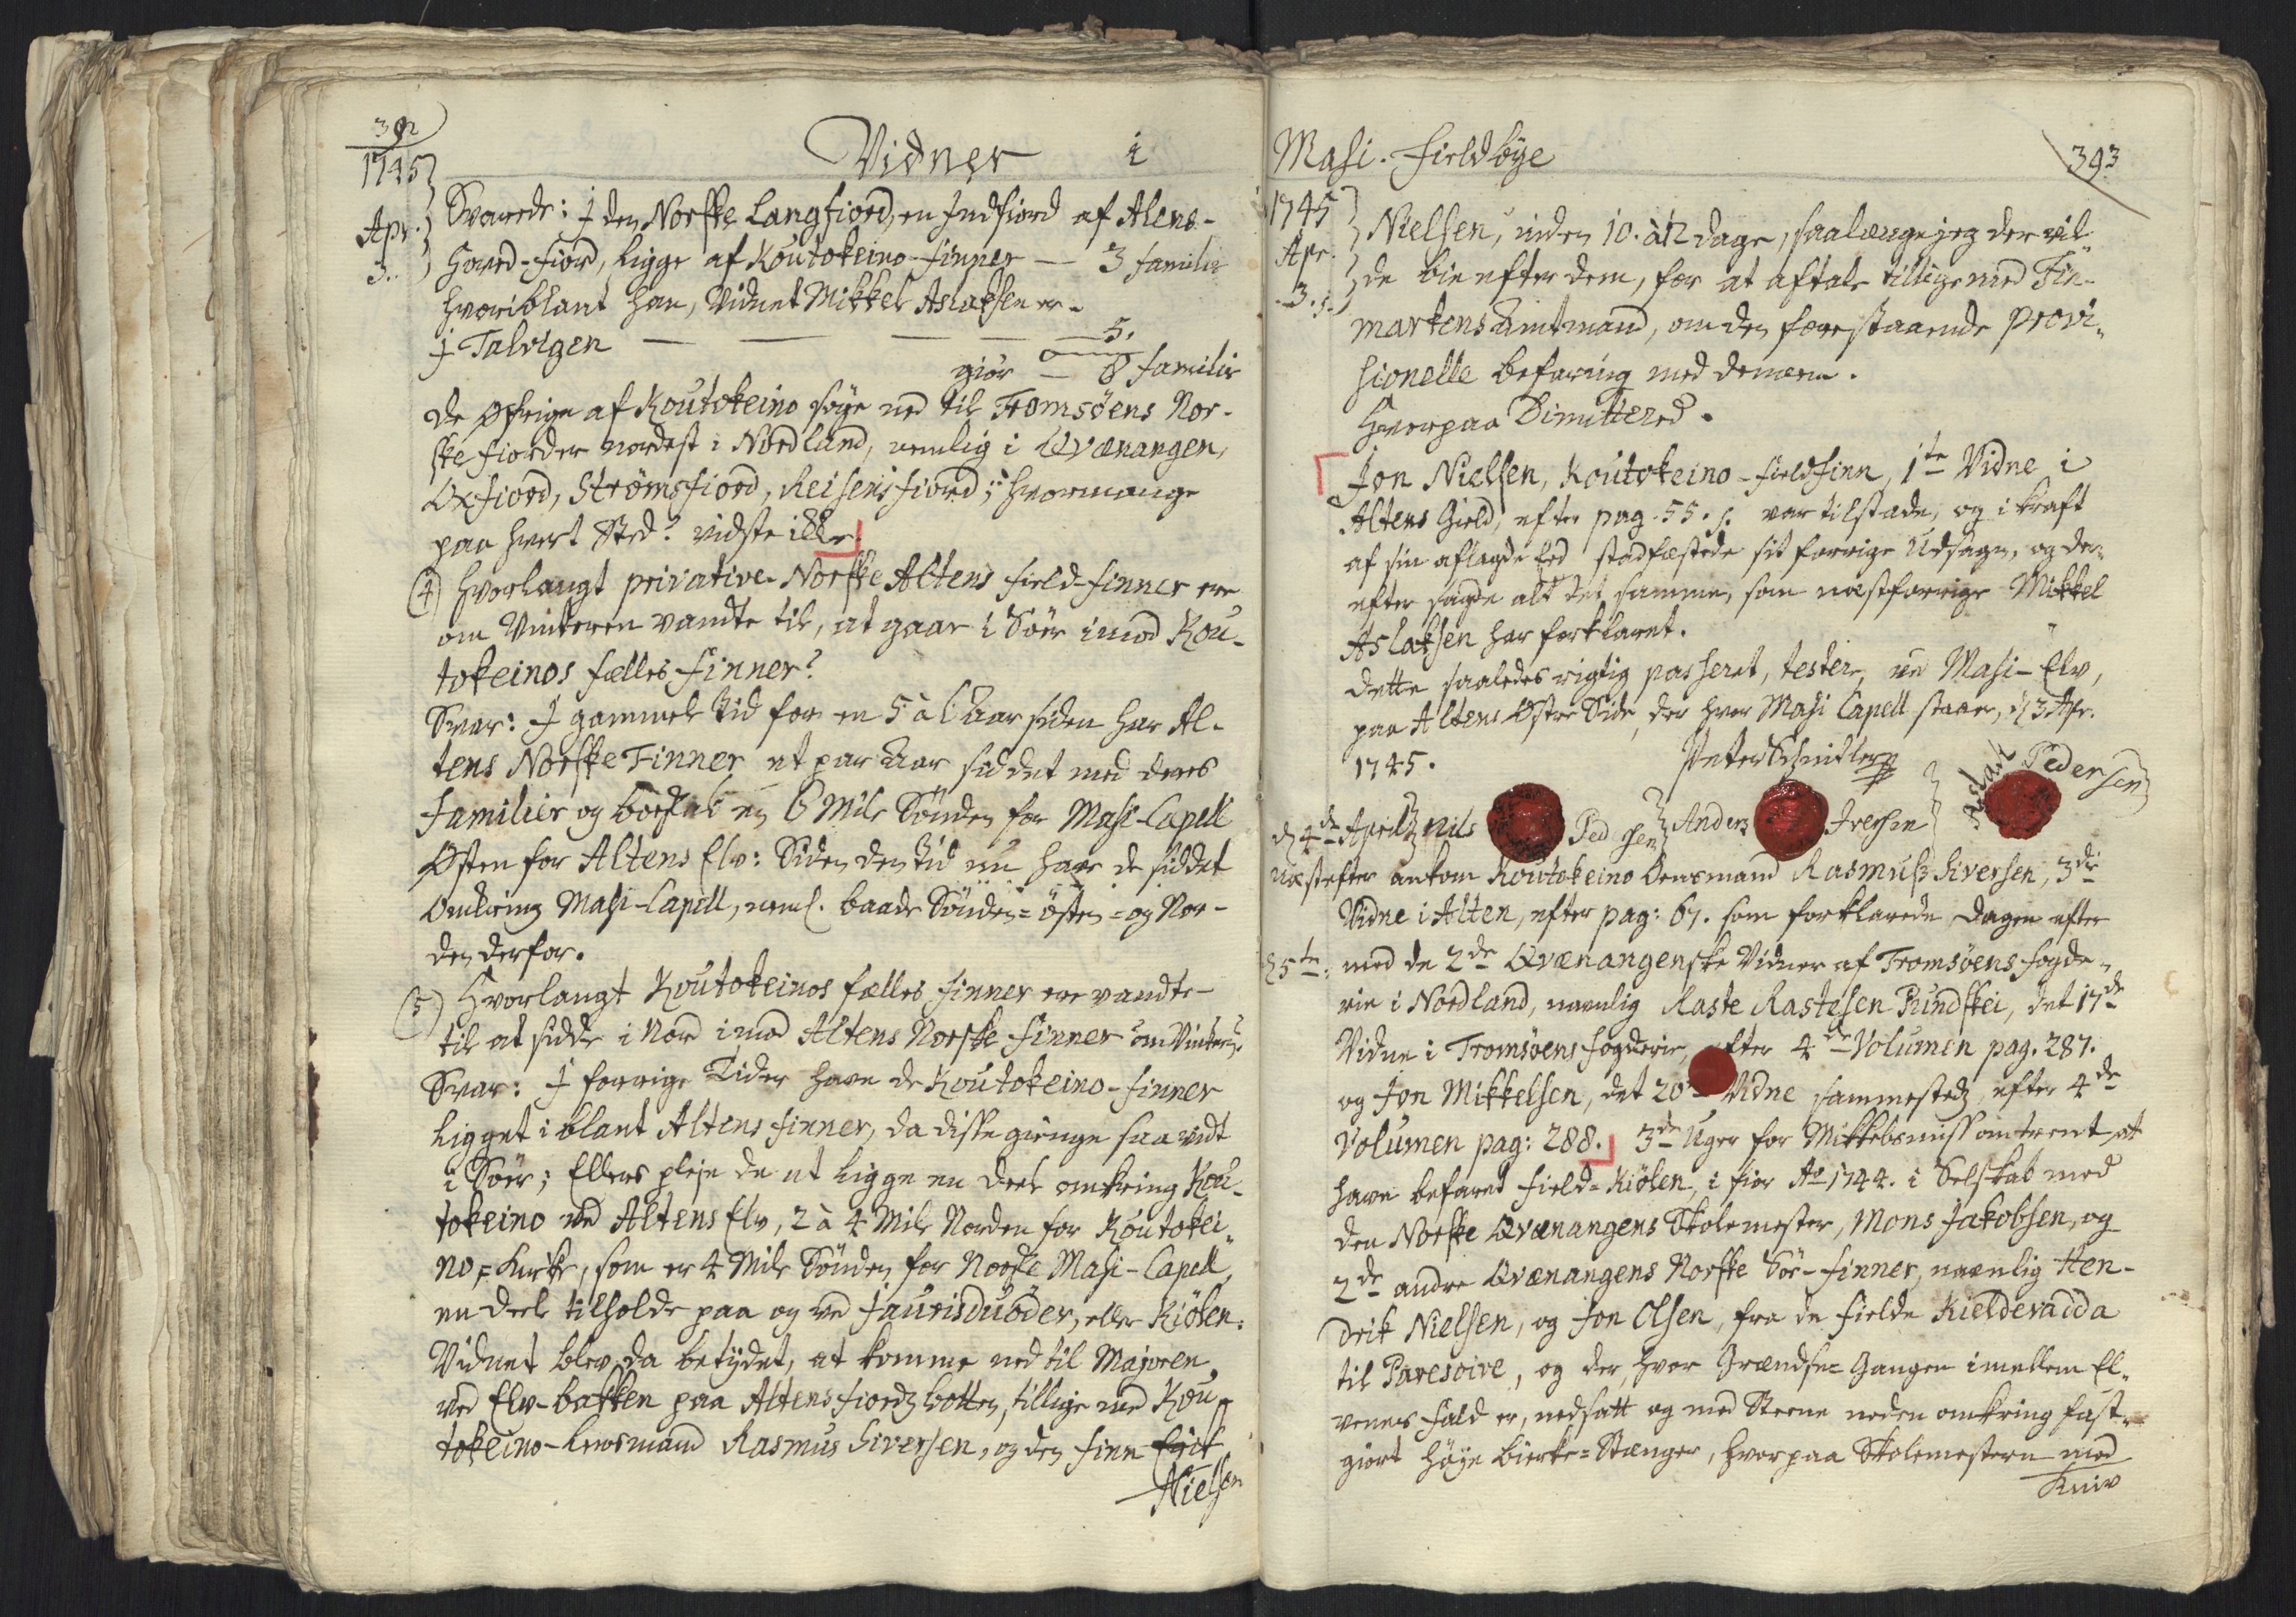 392
Vidner i
1745
Apr.
3.
Svarede: I den Norske Langfiord, en Indfiord af Altens-
Hoved-Fiord, ligge af Koutokeino-Finner — 3 familier
hvoriblant han, Vidnet Mikkel Aslaksen er.
I Talvigen — — — — 5.
giör — 8 familier
De Øfrige af Koutokeino søge ned til Tromsöens Nor-
ske fiorder nordest i Nordland, nemlig i Qvænangen,
Oxfiord, Strömsfiord, Reisensfiord; hvormange
paa hvert Sted? vidste ikke.
4) Hvorlangt privative Norske Altens Field-Finner ere
om Vinteren vandte til, at gaae i Söer imod Kou-
tokeinos fælles Finner?
Svar: I gammel tid for en 5 à 6 Aar siden har Al-
tens Norske Finner et par Aar siddet med deres
Familier og boeskab en 6 Mile Sönden for Masi-Capell
Østen for Altens Elv: Siden den tid nu have de siddet
Omkring Masi-Capell, neml. baade Sönden- östen- og Nor-
den derfor.
5) Hvorlangt Koutokeinos fælles Finner ere vandte
til at sidde i Nord imod Altens Norske Finner om Vinteren?
Svar: I forrige Tider have de Koutokeino-Finner
ligget i blant Altens Finner, da disse ginge saa vidt
i Söer; Ellers pleje de at ligge en deel omkring Kou-
tokeino ved Altens Elv, 2 à 4 Mile Norden for Koutokei-
no-Kirke, som er 4 Mile Sönden for Norske Masi-Capell,
en deel tilholde paa og ved Jaurisduöder, eller Kiölen.
Vidnet blev da betydet, at komme ned til Majoren
ved Elv-bakken paa Altens fiords botten, tillige med Kou-
tokeino-Lensmand Rasmus Siversen, og den Finn
Nielsen
Masi-Fieldbÿe
393
1745
Apr.
3.
Nielsen, inden 10. à 12 dage, saalænge jeg der vil-
de bie efter dem, for at aftale tillige med Fin-
markens Amtmand, om den forestaaende provi-
sionelle befaring med dennem.
Hvorpaa Dimittered.
Jon Nielsen, Koutokeino-Fieldfinn, 1te Vidne i
Altens Gield, efter pag. 55. var tilstæde, og i kraft
af sin aflagde Eed stadfæstede sit forrige Udsagn, og der-
efter sagde alt det samme, som næstforrige Mikkel
Aslaksen har forklaret.
Dette saaledes rigtig passeret, testerer ved Masi-Elv,
paa Altens Østre Side, der hvor Masi Capell staaer, d. 3 Apr.
1745.
Peter Schnitler
Aslak Pedersen
Nils Pedersen Anders Iversen
d. 4de April
næstefter ankom Koutokeino Lensmand Rasmus Siversen, 3die
Vidne i Alten, efter pag: 67. som forklarede Dagen efter
d. 5te: med de 2de Qvænangenske Vidner af Tromsöens Fogde-
rie i Nordland, navnlig Raste Rastesen Pundskei, det 17de
Vidne i Tromsöens Fogderie, efter 4de Volumen pag. 287.
og Jon Mikkelsen, det 20de Vidne sammesteds, efter 4de
Volumen pag: 288. 3de Uger for Mikkelsmiss omtrent at
have befaret Field-Kiölen, i fior Ao 1744. i Selskab med
den Norske Qvænangens Skolemester, Mons Jakobsen, og
2de andre Qvænangens Norske Söe-Finner, navnlig Hen-
drik Nielsen, og Jon Olsen, fra de Fielde Kieldevadda
til Paresoive, og der, hvor Grændse-Gangen imellem El-
venes fald er, nedsatt og med Steene neden omkring fast-
giort höye birke-Stænger, hvorpaa Skolemesteren med
Kniv